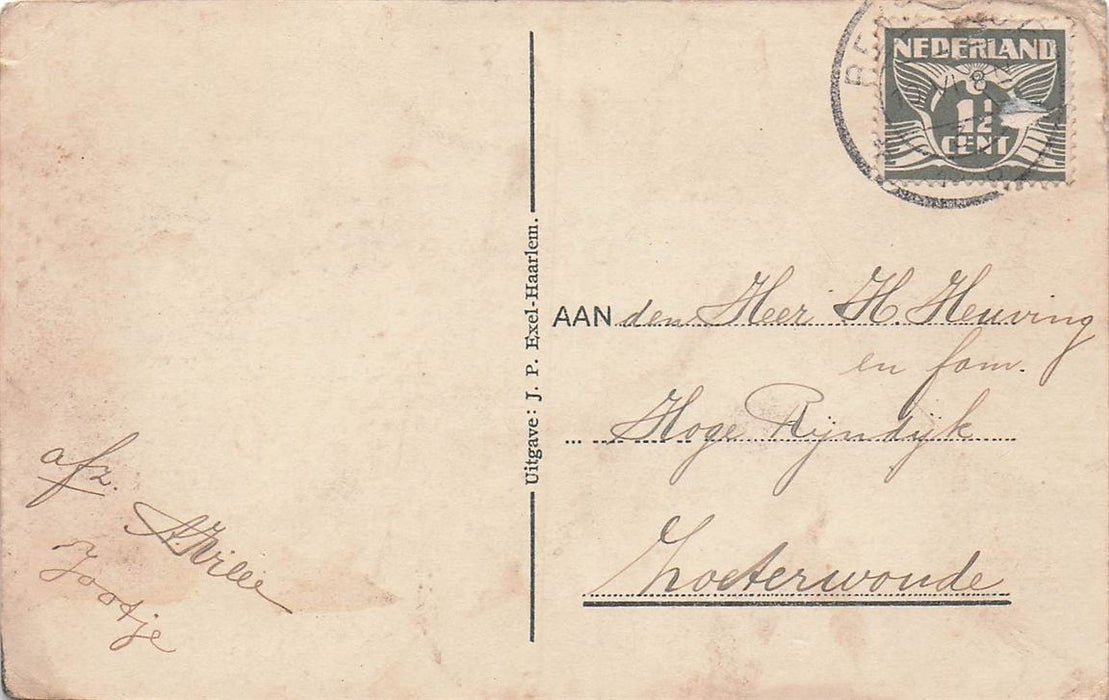 NEDERLAND
1½
CENT
Uitgave: J. P. Exel-Haarlem.
AAN den Heer H. Heuving
en fam.
Hoge Rijndijk
Zoeterwoude
afz.
Jootje